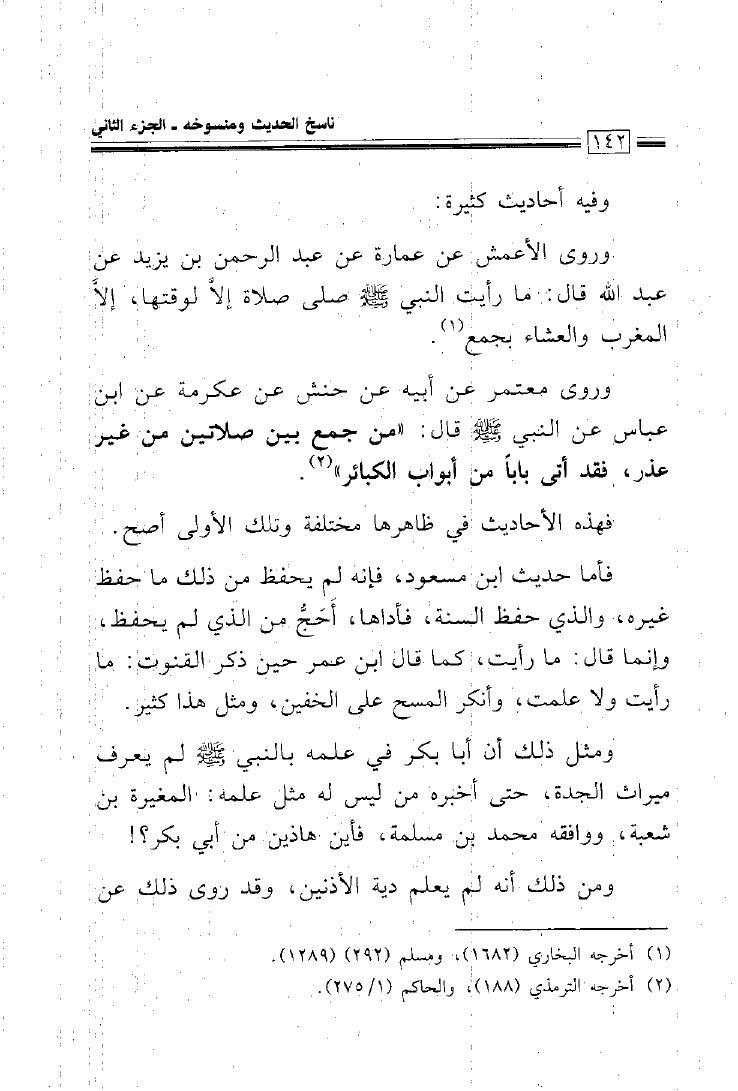 ناسخ الحديث ومنسوخه ـ الجزء الثاني
١٤٢
وفيه أحاديث كثيرة:
وروى الأعمش عن عمارة عن عبد الرحمن بن يزيد عن
عبد الله قال: ما رأيت النبي ﷺ صلى صلاة إلاَّ لوقتها، إلاَّ
المغرب والعشاء بجمع(١).
وروى معتمر عن أبيه عن حنش عن عكرمة عن ابن
عباس عن النبي ﷺ قال: «من جمع بين صلاتين من غير
عذر، فقد أتى باباً من أبواب الكبائر»(٢).
فهذه الأحاديث في ظاهرها مختلفة وتلك الأولى أصح.
فأما حديث ابن مسعود، فإنه لم يحفظ من ذلك ما حفظ
غيره، والذي حفظ السنة، فأداها، أَحَجُّ من الذي لم يحفظ،
وإنما قال: ما رأيت، كما قال ابن عمر حين ذكر القنوت: ما
رأيت ولا علمت، وأنكر المسح على الخفين، ومثل هذا كثير.
ومثل ذلك أن أبا بكر في علمه بالنبي ﷺ لم يعرف
ميراث الجدة، حتى أخبره من ليس له مثل علمه: المغيرة بن
شعبة، ووافقه محمد بن مسلمة، فأين هاذين من أبي بكر؟!
ومن ذلك أنه لم يعلم دية الأذنين، وقد روى ذلك عن
(١) أخرجه البخاري (١٦٨٢)، ومسلم (٢٩٢) (١٢٨٩).
(٢) أخرجه الترمذي (١٨٨)، والحاكم (١/ ٢٧٥).